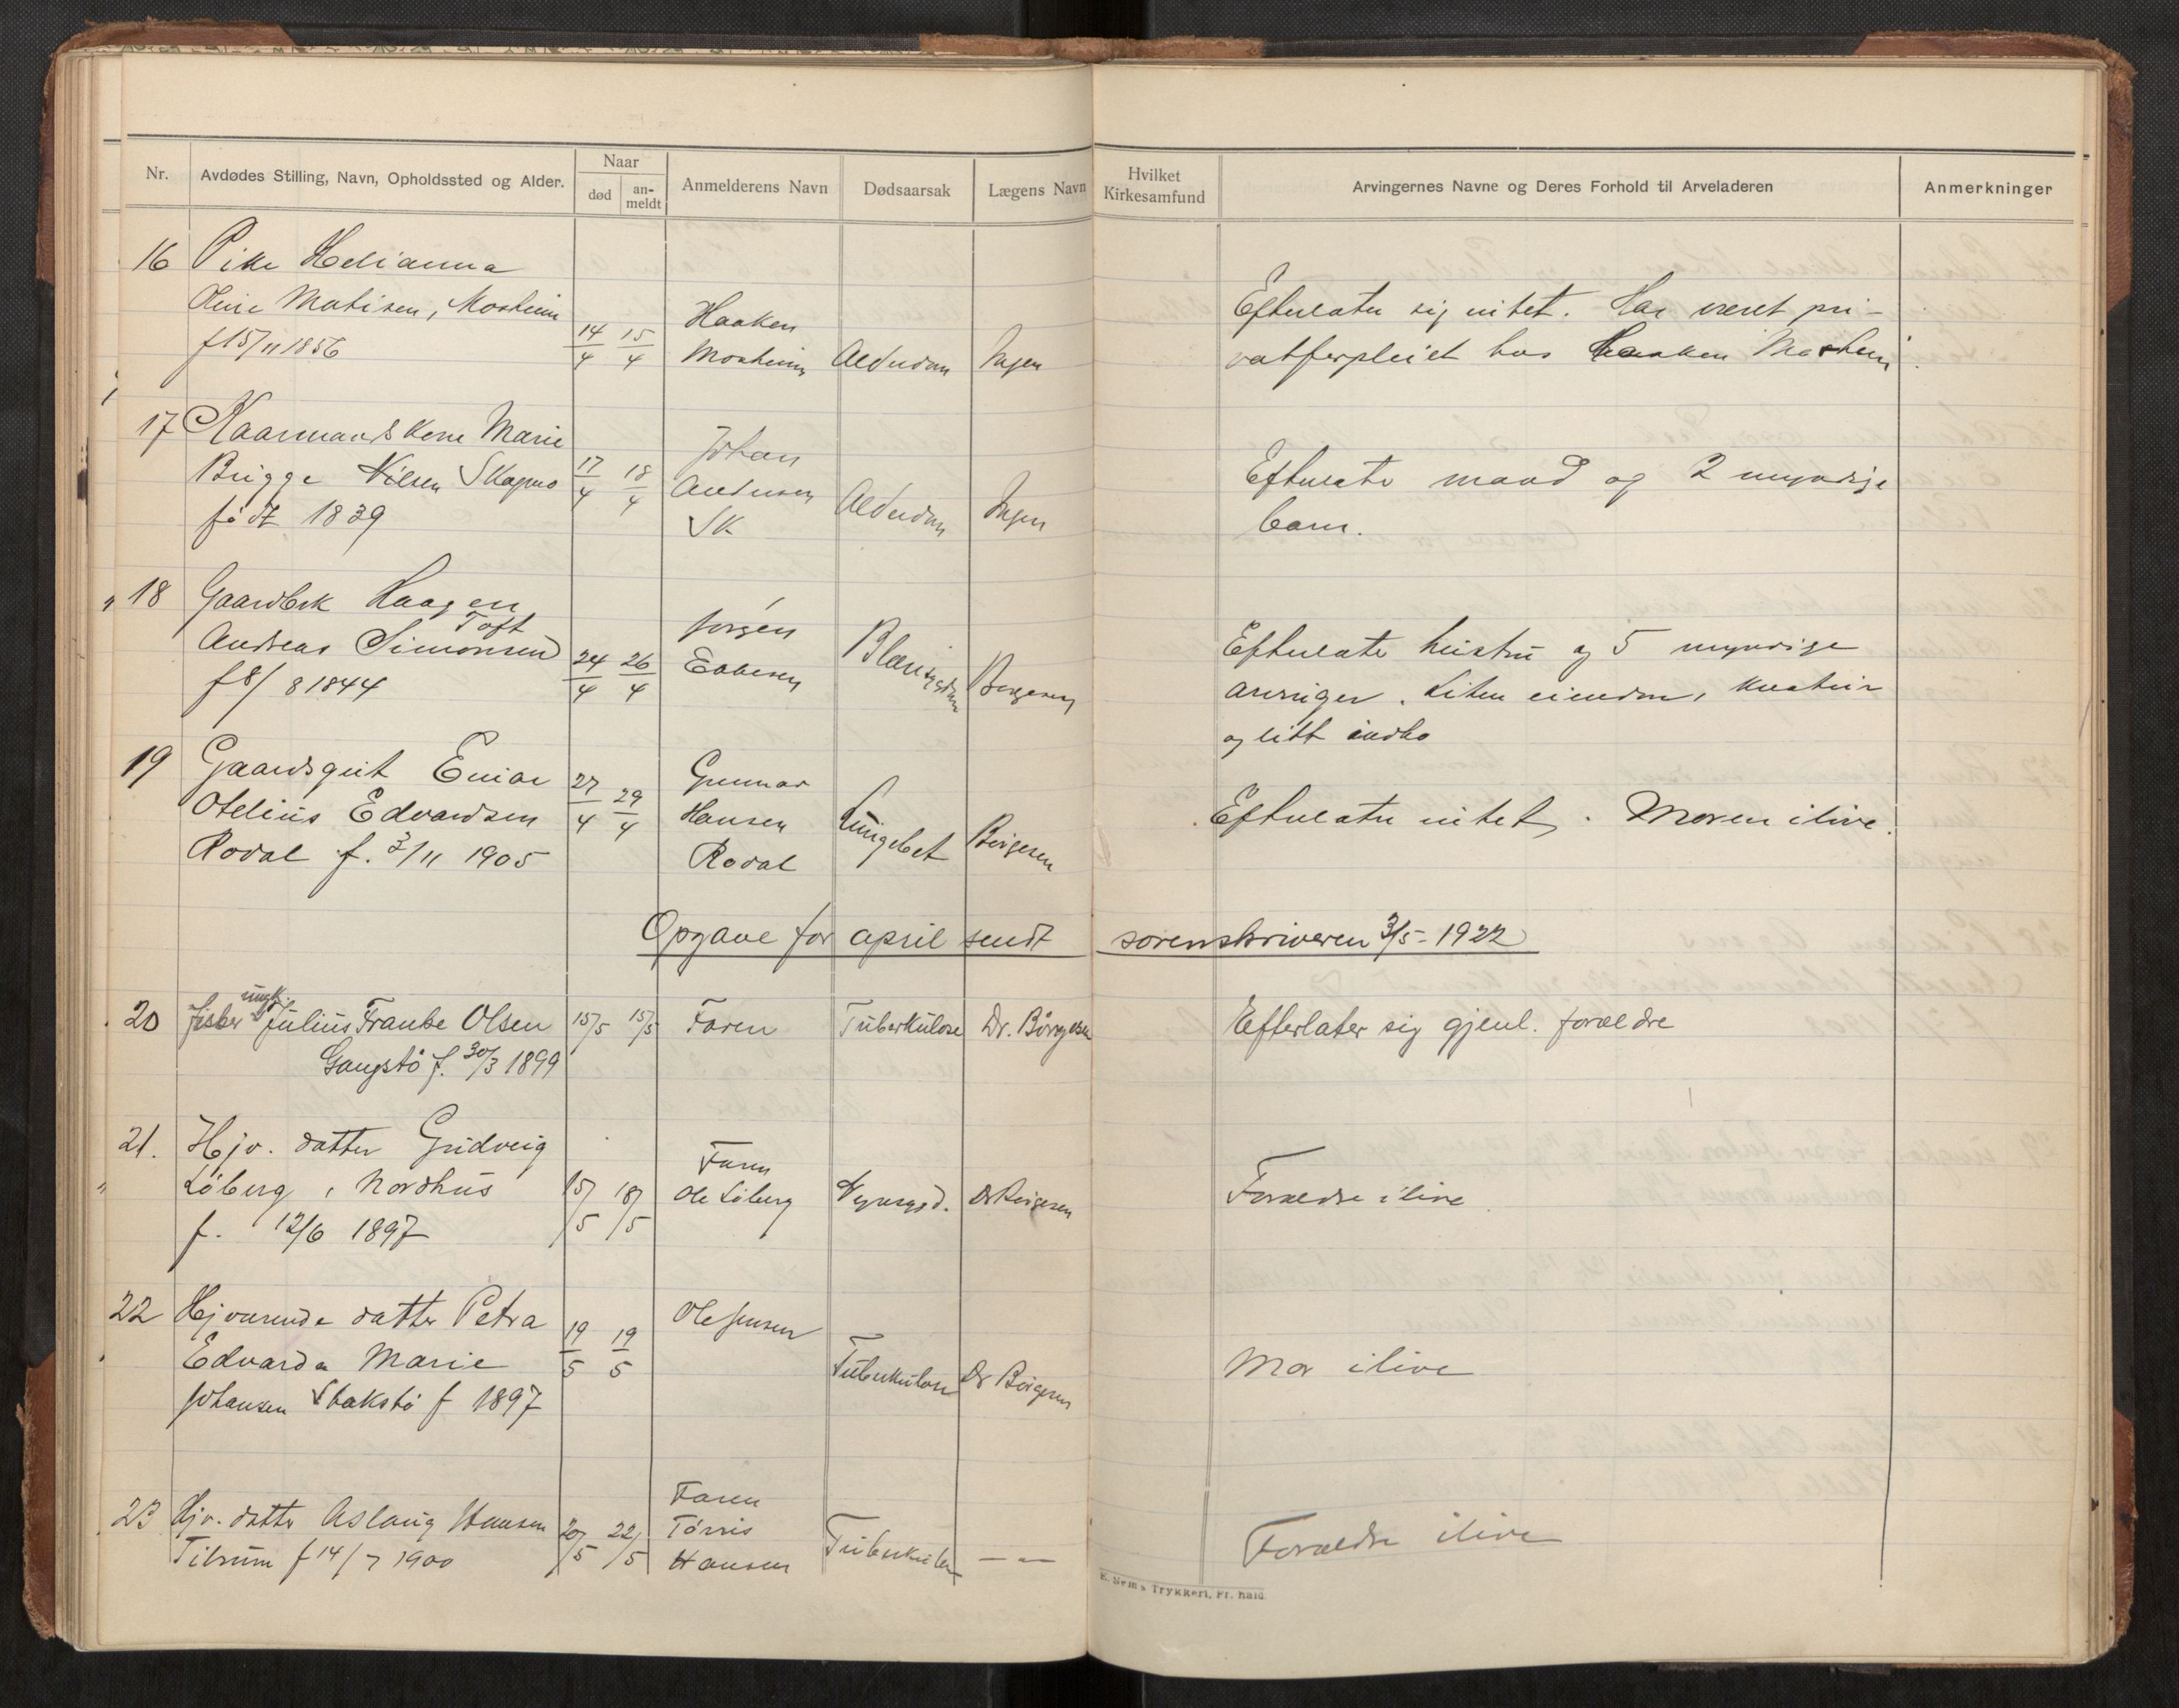 Nr. Avdødes Stilling, Navn, Opholdssted og Alder. Naar død an-meldt Anmelderens Navn Dødsaarsak Lægens Navn Hvilket Kirkesamfund Arvingernes Navne og Deres Forhold til Arveladeren Anmerkninger
16 Pike Helianna
Oline Matisen, Mosheim
f 15/11 1856
14/4 15/4
Haaken
Mosheim
Alderdom
Ingen
Efterlater sig intet. Har været pri-
vatforpleiet hos Haaken Mosheim
17 Kaarmandskone Marie
Brigge Nilsen Skagmo
født 1839
17/4 18/4
Johan
Andersen
SK
Alderdom
Ingen
Efterlate mand og 2 myndige
barn.
" 18 Gaardbrk Haagen
Toft
Andreas Simonsen
f 8/8 1844
24/4 26/4
Jørgen
Ebbesen
Børgesen
Efterlate hustru og 5 myndige
arvinger. Liten eiendom, kreatur
og litt indbo
19 Gaardsgut Einar
Otelius Edvardsen
Rodal f. 3/11 1905
27/4 29/4
Gunnar
Hansen
Rodal
Lungebet
Børgesen
Efterlater intet. Moren ilive.
Opgave for april sendt sorenskriveren 3/5-1922
20 Fisker ungk. Julius Franke Olsen
Gangstö f. 30/3 1899
15/5 15/5
Faren
Tuberkulose
Dr. Börgesen
Efterlater sig gjenl. forældre
21. Hjv. datter Gudveig
Löberg, Nordhus
f. 12/6 1897
15/5 18/5
Faren
Ole Löberg
Dr Börgesen
Forældre ilive
22 Hjværende datter Petra
Edvarda Marie
Johansen Stakstö f 1897
19/5 19/5
Ole Jensen
Tuberkulose
Dr Börgesen
Mor ilive
23 Hjv. datter Aslaug Hansen
Tilrum f 14/7 1900
20/5 22/5
Faren
Törris
Hansen
Tuberkulose
— " —
Forældre ilive
E. Sem's Trykkeri, Fr. hald.